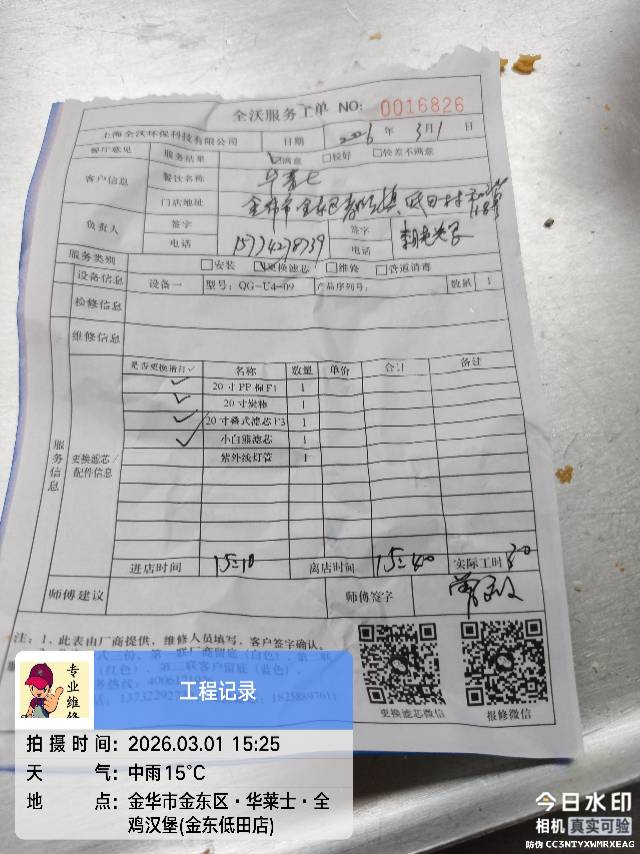 全沃服务工单 NO: 0016826
上海全沃环保科技有限公司 日期 2026年3月1日
餐厅意见 服务结果 ☑满意 □较好 □较差不满意
客户信息 餐饮名称 华莱士
门店地址 金华市金东区
负责人 签字 签字
电话 15774278739 电话
服务类别 □安装 ☑更换滤芯 □维修 □管道消毒
设备信息 设备一 型号: QG-U4-09 产品序列号: 数量 1
检修信息
维修信息
服务信息 更换滤芯/配件信息
是否更换请打✓ 名称 数量 单价 合计 备注
✓ 20寸PP棉F1 1
✓ 20寸炭棒 1
✓ 20寸褶式滤芯F3 1
✓ 小白熊滤芯 1
紫外线灯管 1
进店时间 15:10 离店时间 15:40 实际工时 30
师傅建议 师傅签字
注: 1、此表由厂商提供，维修人员填写，客户签字确认。
更换滤芯微信 报修微信
专业维修
工程记录
拍摄时间: 2026.03.01 15:25
天气: 中雨15℃
地点: 金华市金东区·华莱士·全鸡汉堡(金东低田店)
今日水印
相机 真实可验
防伪 CC3NTYXWMRXEAG